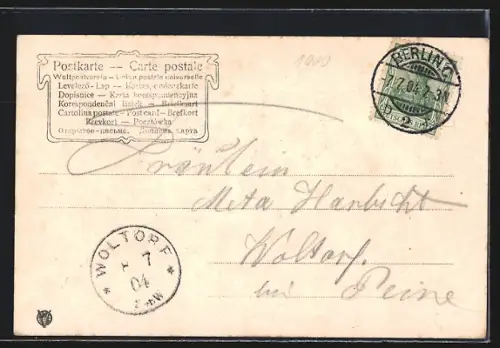 Postkarte -- Carte postale
Weltpostverein - Union postale universelle
Levelező-Lap - Korrespondenzkarte
Dopisnice - Karta korespondencyjna
Korespondenční lístek - Briefkaart
Cartolina postale - Post card - Brefkort
Brevkort - Pocztówka
Открытое письмо.
1909
BERLIN C
7.04.7-8N
Fräulein
Meta Harbicht
Woltorf.
bei Peine
* WOLTORF *
7
04